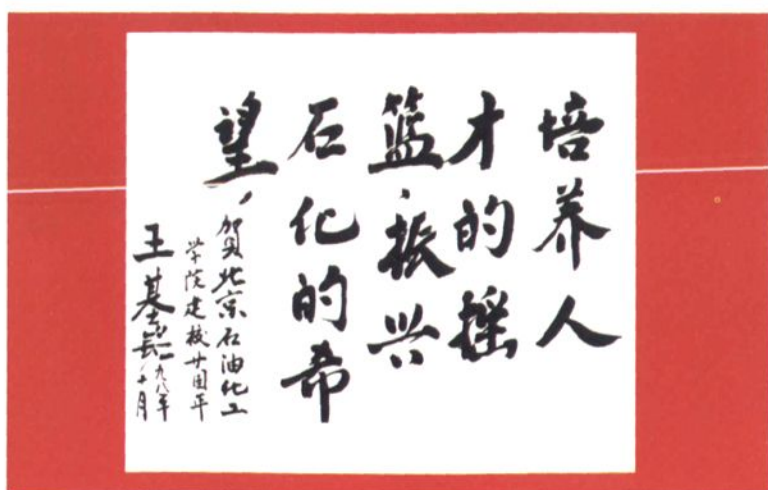 培养人
才的摇
篮，振兴
石化的希
望，
贺北京石油化工
学院建校廿周年
王基铭
一九九八年
十月